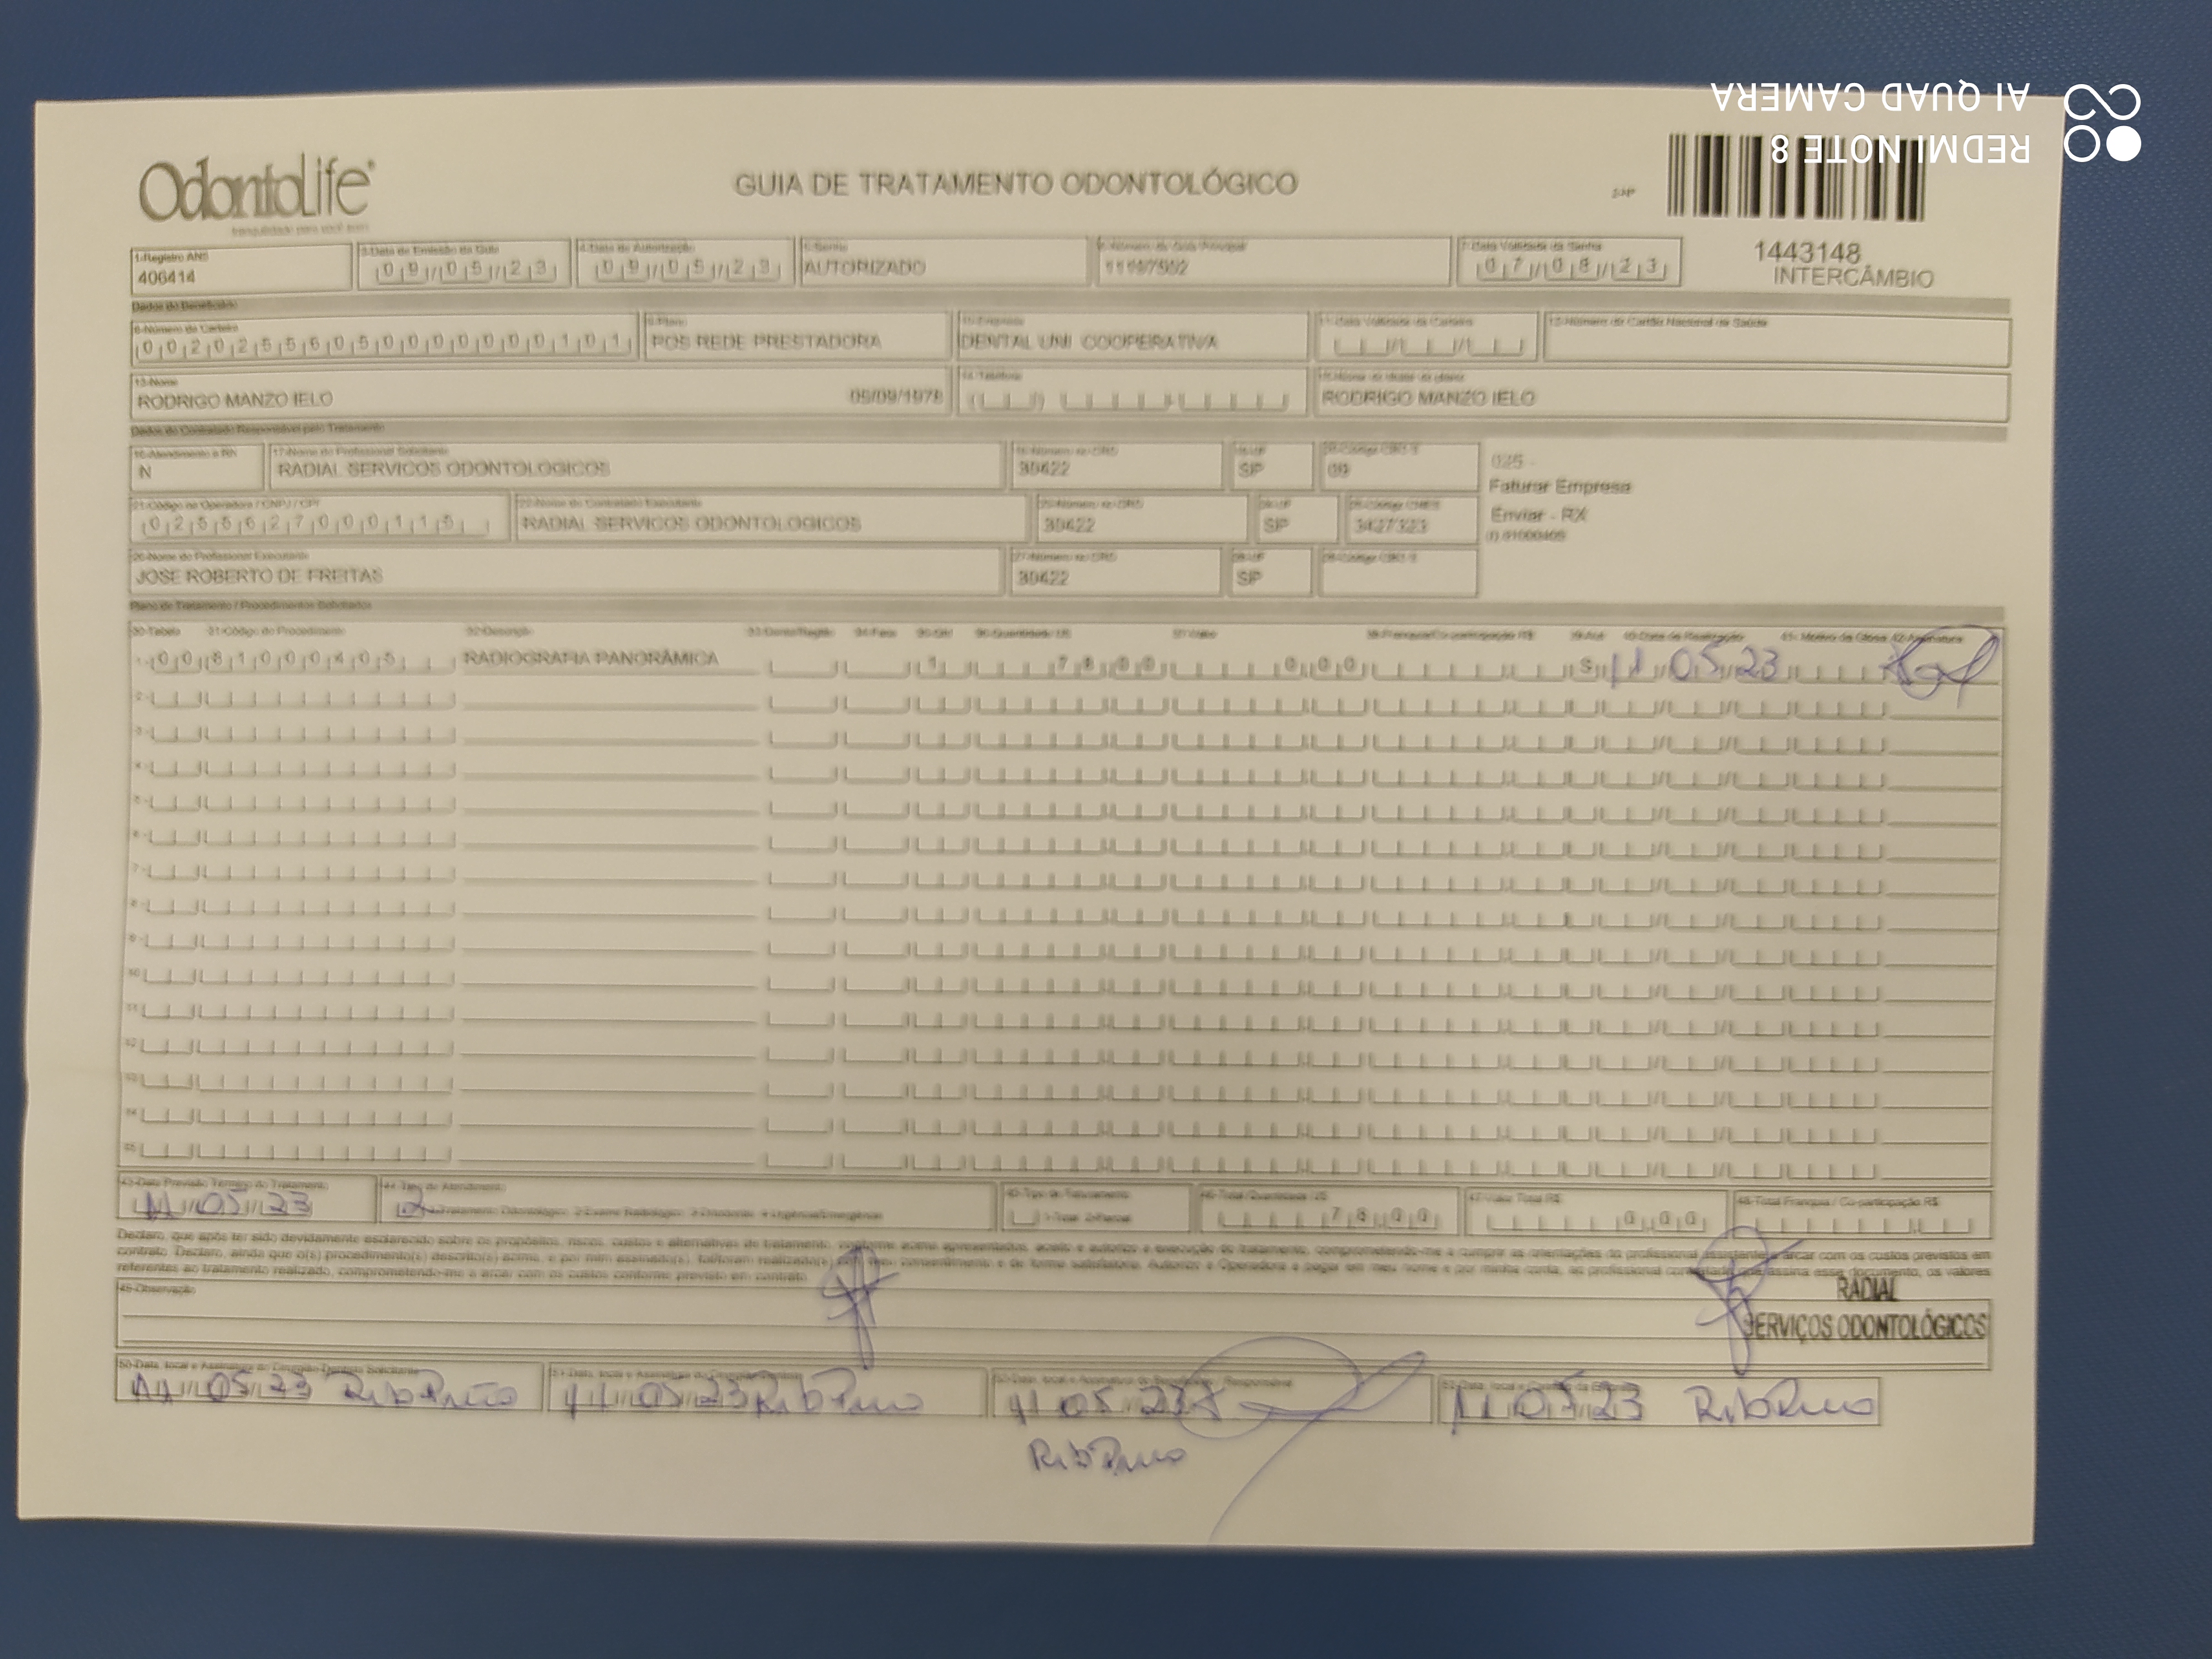 REDMI NOTE 8
AI QUAD CAMERA
OdontoLife®
tranquilidade para você sorrir
GUIA DE TRATAMENTO ODONTOLÓGICO
2-Nº
1443148
INTERCÂMBIO
1-Registro ANS
406414
3-Data de Emissão da Guia
09/05/23
4-Data de Autorização
09/05/23
5-Senha
AUTORIZADO
6-Número da Guia Principal
7-Data Validade da Senha
07/08/23
Dados do Beneficiário
8-Número da Carteira
00202556050000000101
9-Plano
POS REDE PRESTADORA
10-Empresa
DENTAL UNI COOPERATIVA
11-Data Validade da Carteira
12-Número do Cartão Nacional de Saúde
13-Nome
RODRIGO MANZO IELO
09/1978
14-Telefone
15-Nome do titular do plano
RODRIGO MANZO IELO
Dados do Contratado Responsável pelo Tratamento
16-Atendimento a RN
N
17-Nome do Profissional Solicitante
RADIAL SERVICOS ODONTOLOGICOS
18-Número no CRO
30422
19-UF
SP
20-Código CBO-S
025 -
Faturar Empresa
Enviar - RX
21-Código na Operadora / CNPJ / CPF
02556270000115
22-Nome do Contratado Executante
RADIAL SERVICOS ODONTOLOGICOS
23-Número no CRO
30422
24-UF
SP
25-Código CNES
3427323
(I) 81000405
26-Nome do Profissional Executante
JOSE ROBERTO DE FREITAS
27-Número no CRO
30422
28-UF
SP
29-Código CBO-S
Plano de Tratamento / Procedimentos Solicitados
30-Tabela 31-Código do Procedimento 32-Descrição 33-Dente/Região 34-Face 35-Qtd 36-Quantidade US 37-Valor 38-Franquia/Co-participação R$ 39-Aut 40-Data de Realização 41-Motivo da Glosa 42-Assinatura
1- 00 81000405 RADIOGRAFIA PANORÂMICA 1 78 00 0 00 S 11/05/23
2-
3-
4-
5-
6-
7-
8-
9-
10-
11-
12-
13-
14-
15-
43-Data Previsão Término do Tratamento
11/05/23
44-Tipo de Atendimento
2 1-Tratamento Odontológico 2-Exame Radiológico 3-Ortodontia 4-Urgência/Emergência
45-Tipo de Faturamento
1-Total 2-Parcial
46-Total Quantidade US
78 00
47-Valor Total R$
0 00
48-Total Franquia / Co-participação R$
Declaro, que após ter sido devidamente esclarecido sobre os propósitos, riscos, custos e alternativas de tratamento, conforme acima apresentados, aceito e autorizo a execução do tratamento, comprometendo-me a cumprir as orientações do profissional assistente e arcar com os custos previstos em
contrato. Declaro, ainda que o(s) procedimento(s) descrito(s) acima, e por mim assinado(s), foi/foram realizado(s) com meu consentimento e de forma satisfatória. Autorizo a Operadora a pagar em meu nome e por minha conta, ao profissional contratado que assina esse documento, os valores
referentes ao tratamento realizado, comprometendo-me a arcar com os custos conforme previsto em contrato.
49-Observação
RADIAL
SERVIÇOS ODONTOLÓGICOS
50-Data, local e Assinatura do Cirurgião-Dentista Solicitante
11/05/23 Rib Preto
51-Data, local e Assinatura do Cirurgião-Dentista
11/05/23 Rib Preto
52-Data, local e Assinatura do Beneficiário / Responsável
11/05/23
Rib Preto
53-Data, local e Carimbo da Empresa
11/05/23 Rib Preto